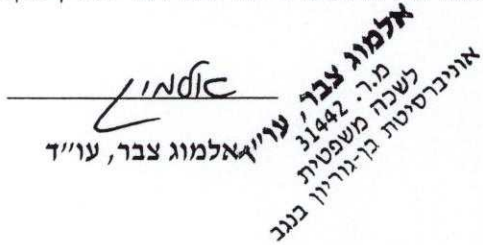 אלמוג צבר, עו"ד
אלמוג צבר, עו"ד
מ.ר. 31442
לשכה משפטית
אוניברסיטת בן-גוריון בנגב